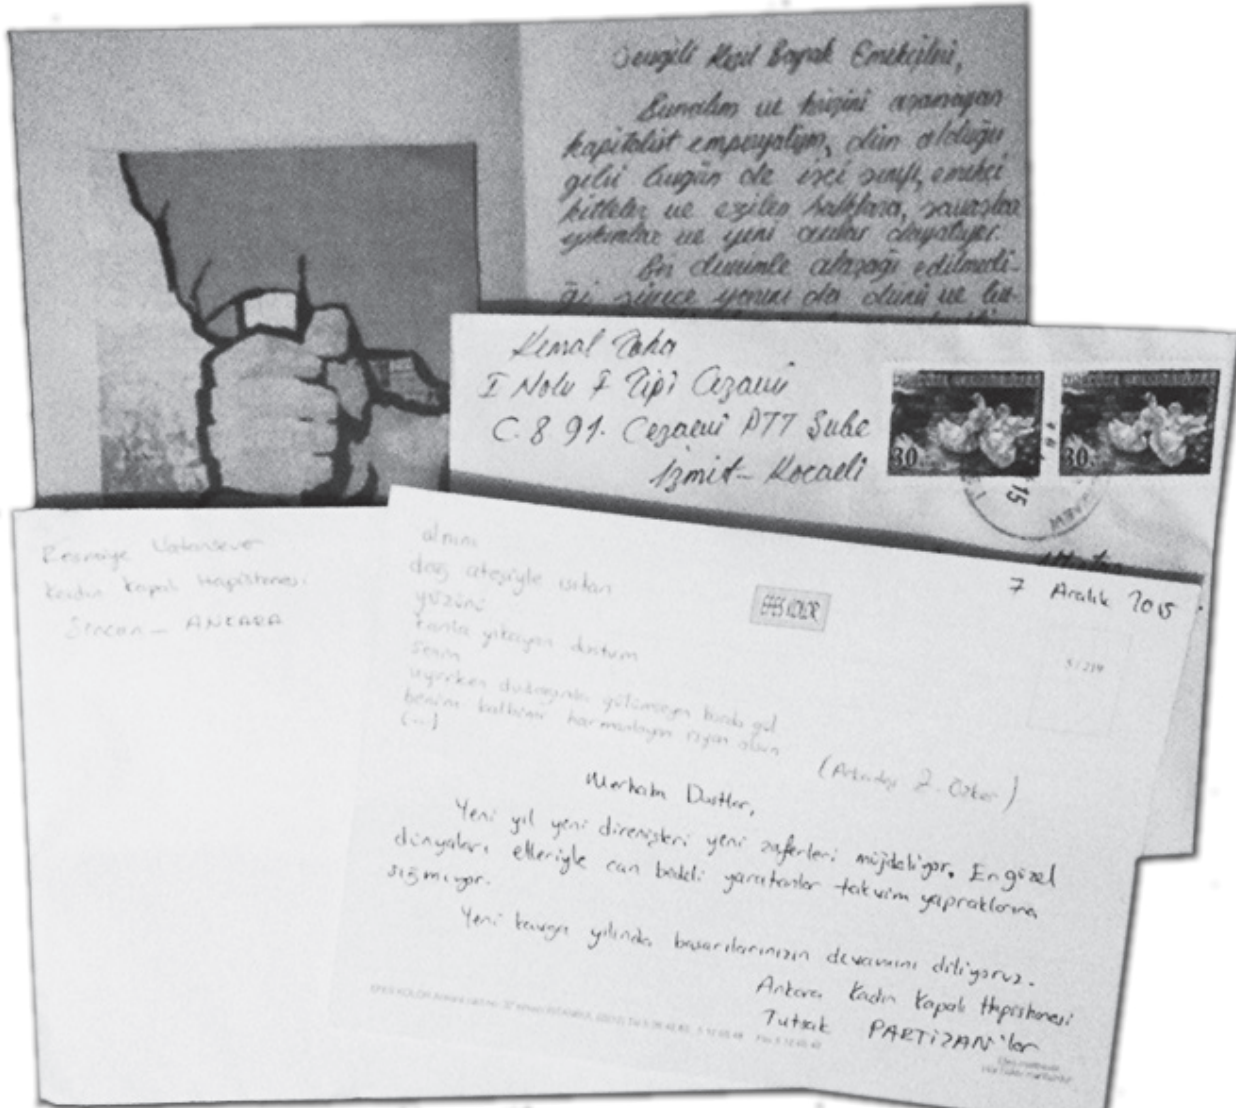 Sevgili Kızıl Bayrak Emekçileri,
Bunalım ve krizini aşamayan
kapitalist emperyalizm, dün olduğu
gibi bugün de işçi sınıfı, emekçi
kitleler ve ezilen halklara, savaşlar
yıkımlar ve yeni acılar dayatıyor.
Bir devrimle alaşağı edilmedi-
ği sürece yarını da dünü ve bu-
Kemal
1 Nolu F Tipi Cezaevi
C.8 91. Cezaevi PTT Şube
İzmit - Kocaeli
30
30
15
Resmiye Vatansever
Kadın Kapalı Hapishanesi
Sincan - ANKARA
7 Aralık 2015
EFES KOLOR
51219
alnını
dağ ateşiyle ısıtan
yüzünü
kanla yıkayan dostum
senin
uyurken dudağında gülümseyen bordo gül
benim kalbimi harmanlayan isyan olsun
(...)
(Arkadaş Z. Özger)
Merhaba Dostlar,
Yeni yıl yeni direnişleri yeni zaferleri müjdeliyor. En güzel
dünyaları elleriyle can bedeli yaratanlar takvim yapraklarına
sığmıyor.
Yeni kavga yılında başarılarınızın devamını diliyoruz.
Ankara Kadın Kapalı Hapishanesi
Tutsak PARTİZAN'lar